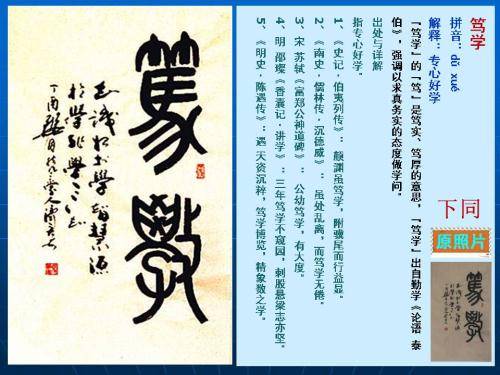 笃学
拼音：dǔ xué
解释：专心好学
「笃学」的「笃」是笃实、笃厚的意思，「笃学」出自勤学《论语 泰
伯》，强调以求真务实的态度做学问。
出处与详解
指专心好学。
1、《史记·伯夷列传》：颜渊虽笃学，附骥尾而行益显。
2、《南史·儒林传·沉德威》：虽处乱离，而笃学无倦。
3、宋 苏轼《富郑公神道碑》：公幼笃学，有大度。
4、明 邵璨《香囊记·讲学》：三年笃学不窥园，刺股悬梁志亦坚。
5、《明史·陈遇传》：遇天资沉粹，笃学博览，精象数之学。
下同
原照片
篤學
篤學